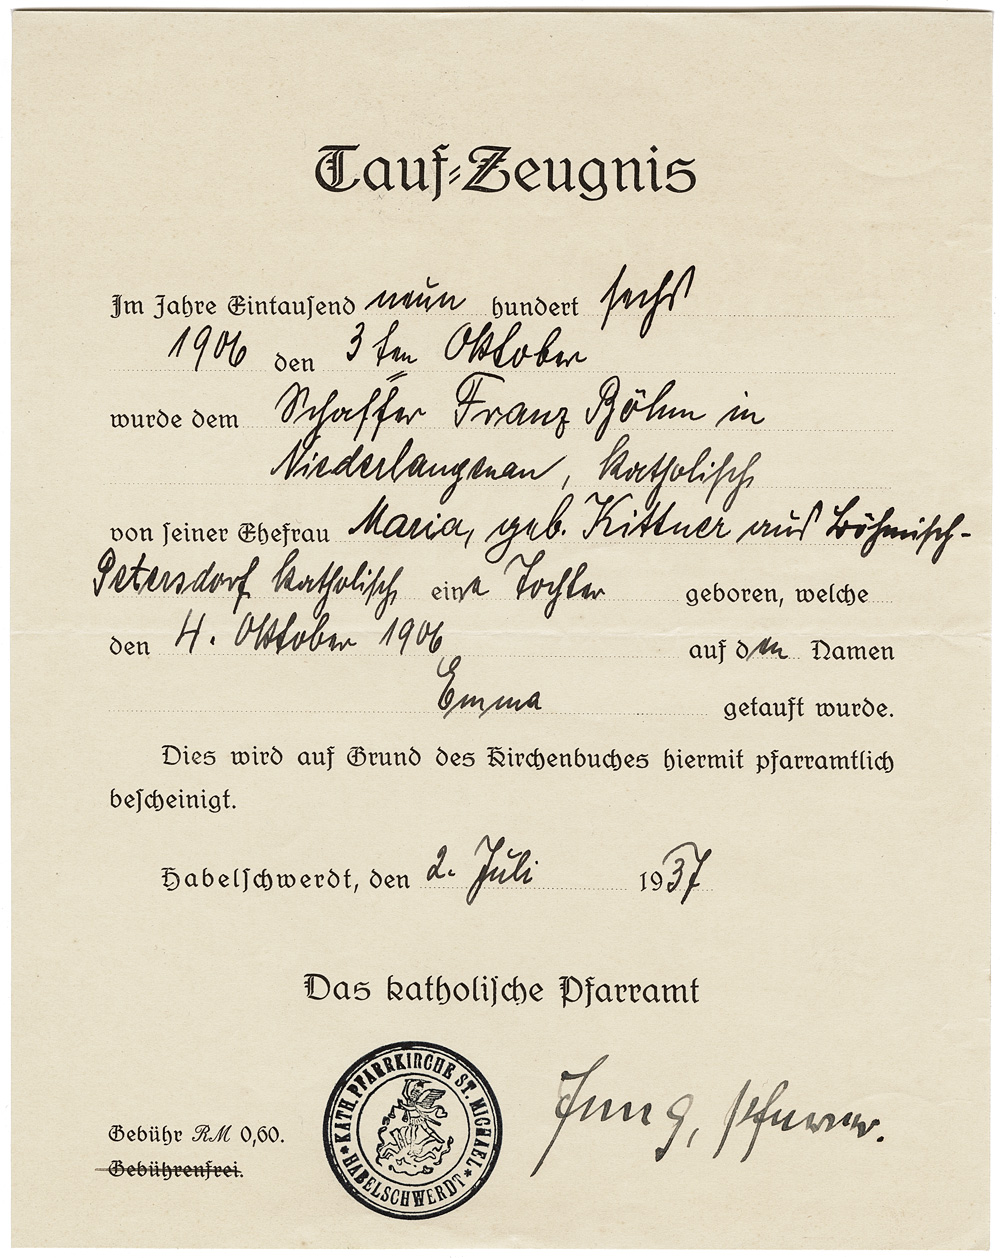 Tauf-Zeugnis
Im Jahre Eintausend neun hundert sechs
1906 den 3ten Oktober
wurde dem Schaffer Franz Böhm in
Niederlangenau, katholisch
von seiner Ehefrau Maria, geb. Kittner aus Böhmisch-
Petersdorf katholisch eine Tochter geboren, welche
den 4. Oktober 1906 auf den Namen
Emma getauft wurde.
Dies wird auf Grund des Kirchenbuches hiermit pfarramtlich
bescheinigt.
Habelschwerdt, den 2. Juli 1937
Das katholische Pfarramt
KATH. PFARRKIRCHE ST. MICHAEL
* HABELSCHWERDT *
Jung, Pfarrer.
Gebühr RM 0,60.
Gebührenfrei.